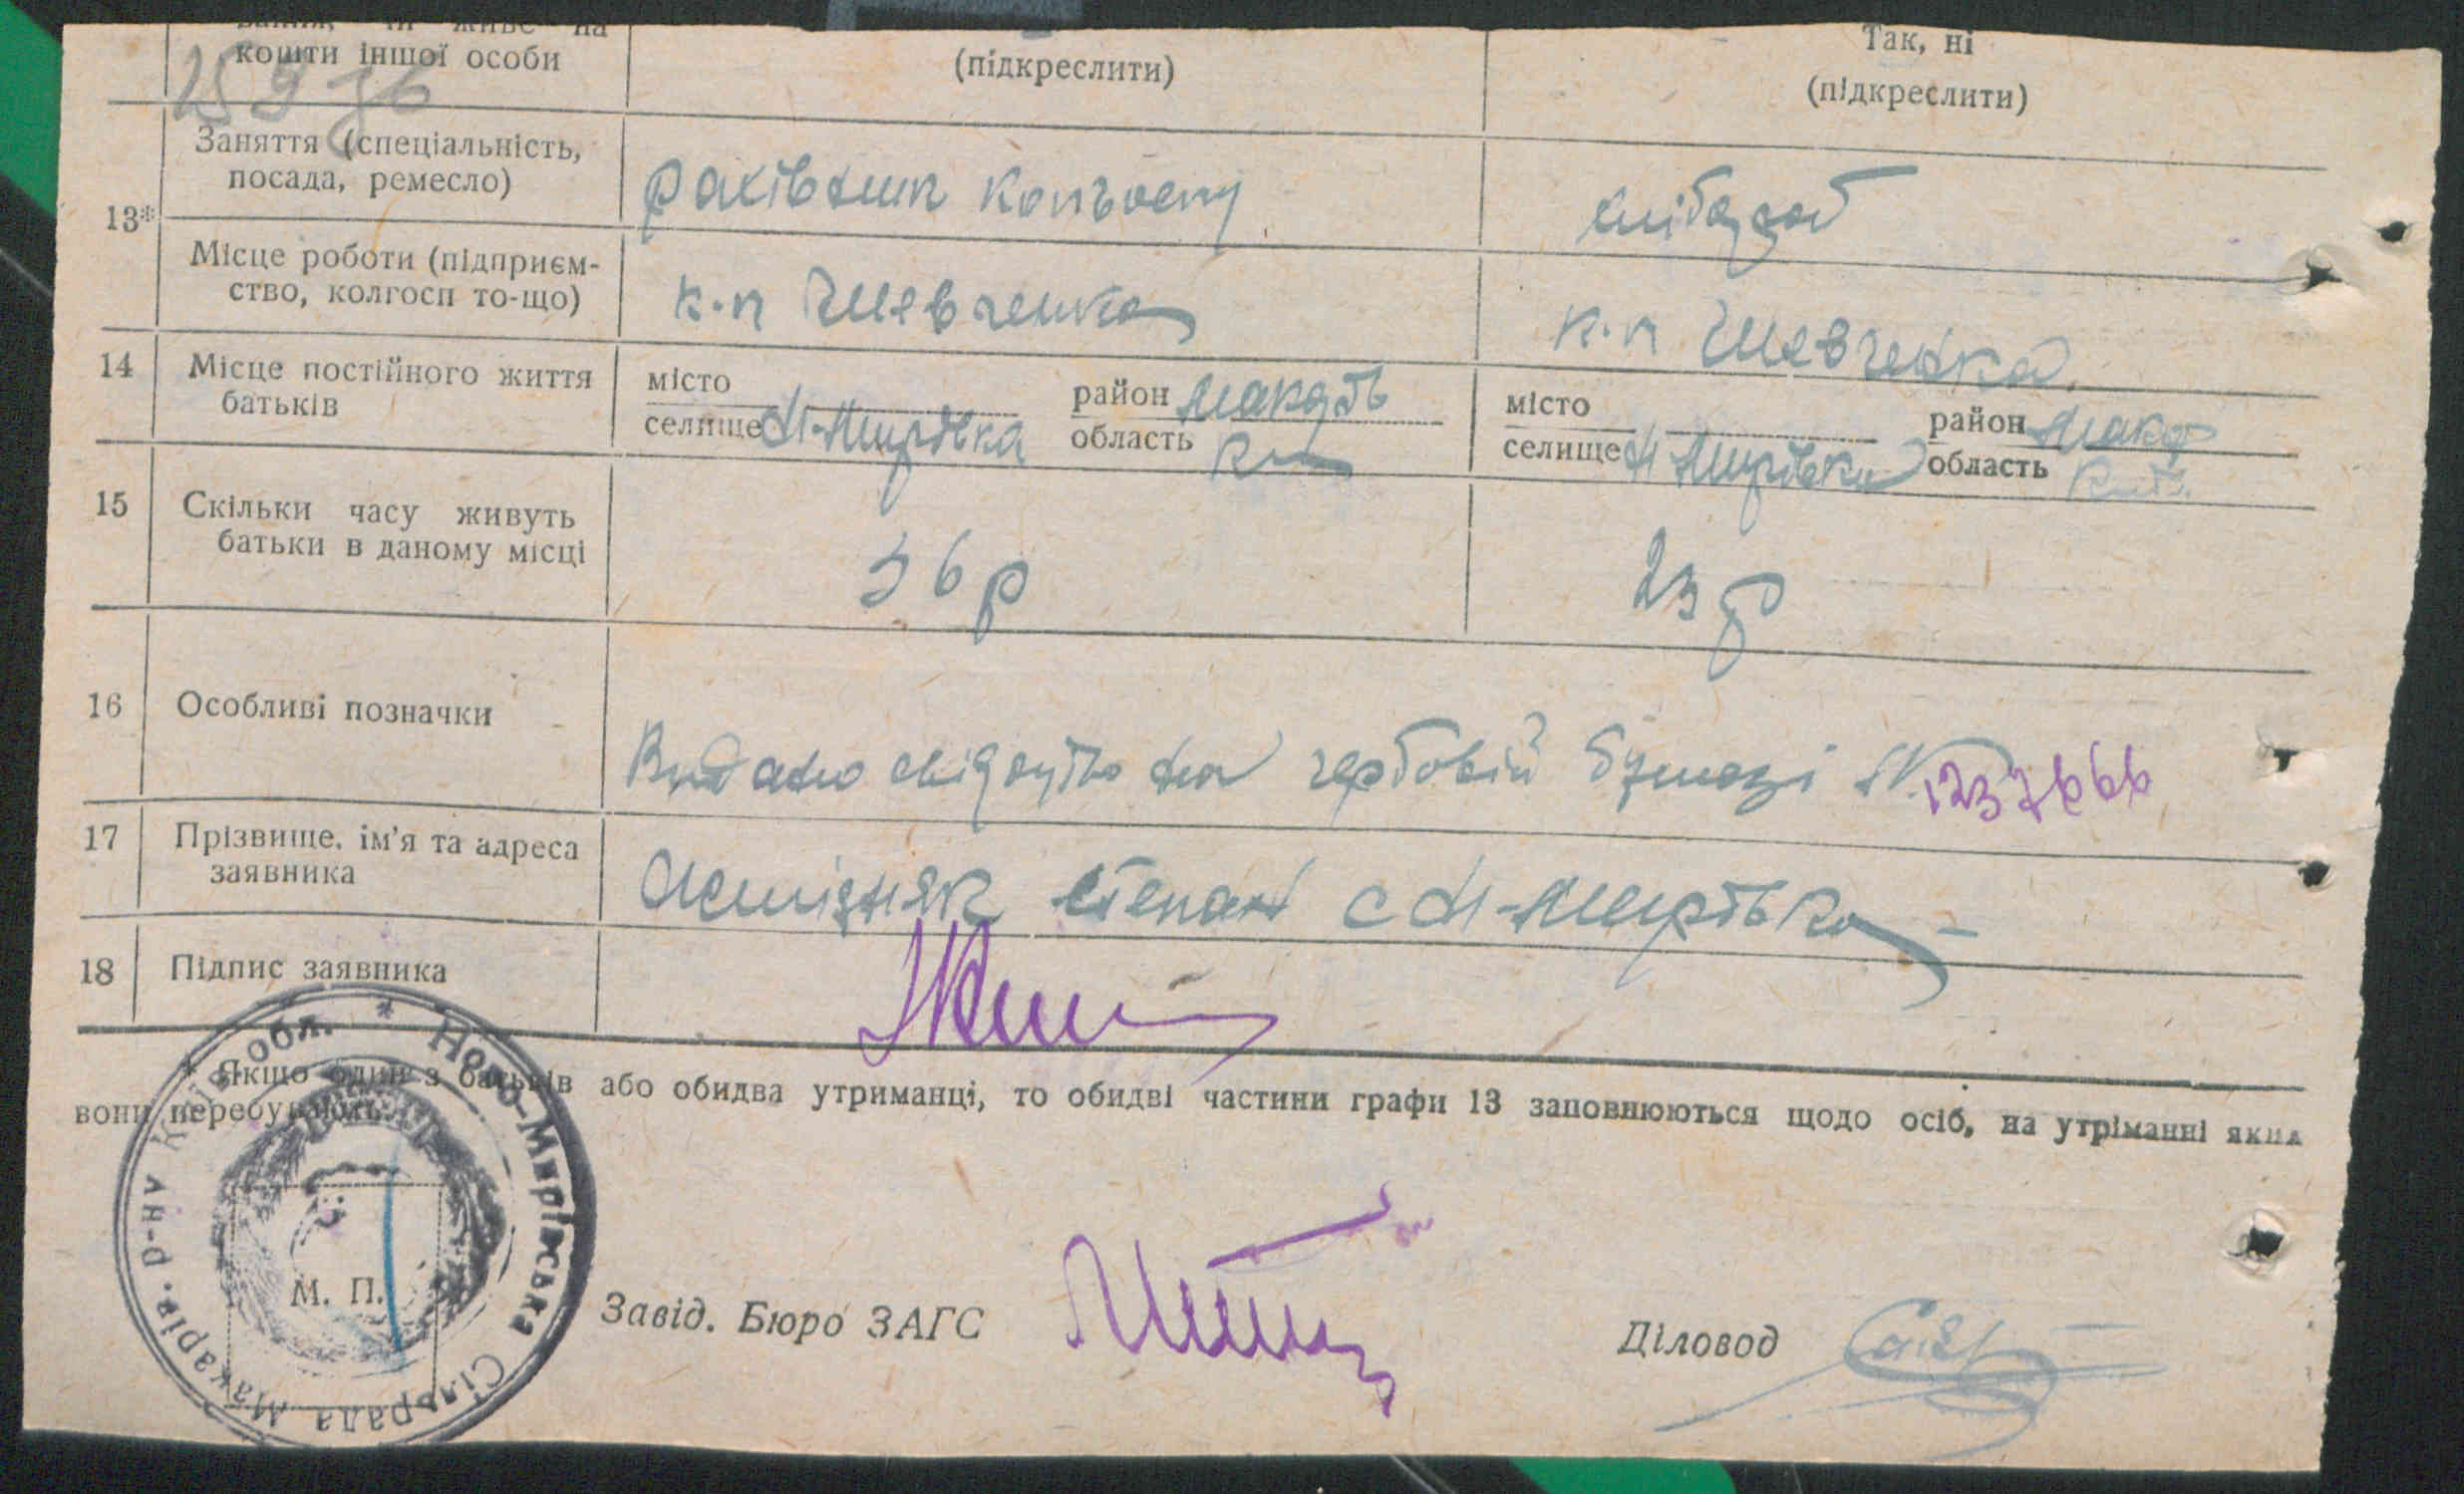 кошти іншої особи
(підкреслити)
Так, ні
(підкреслити)
25 9 36
13*
Заняття (спеціальність,
посада, ремесло)
рахівник
хлібороб
Місце роботи (підприєм-
ство, колгосп то-що)
к.п Шевченка
к.п Шевченка
14
Місце постійного життя
батьків
місто
селище Н-Мирівка
район Макарів
область
місто
селище Н Мирівка
район Макар
область
15
Скільки часу живуть
батьки в даному місці
36 р
23 р
16
Особливі позначки
Видано свідоцтво на гербовій бумазі № 1237666
17
Прізвище, ім'я та адреса
заявника
Степан с Н-Мирівка
18
Підпис заявника
* Якщо один з батьків або обидва утриманці, то обидві частини графи 13 заповнюються щодо осіб, на утріманні яких
вони перебувають.
Ново-Мирівська Сільрада Макарів. р-ну Київ. обл. *
М. П.
Завід. Бюро ЗАГС
Діловод